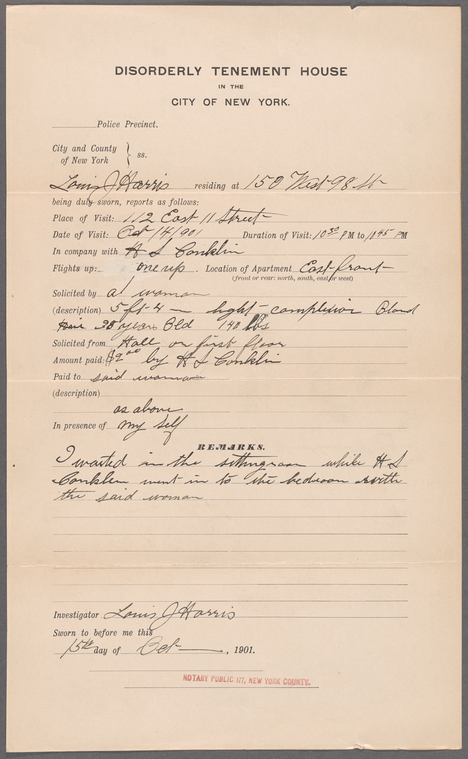 DISORDERLY TENEMENT HOUSE
IN THE
CITY OF NEW YORK.
Police Precinct.
City and County
of New York } ss.
Louis J Harris residing at 150 West 98 St
being duly sworn, reports as follows:
Place of Visit: 112 East 11 Street
Date of Visit: Oct 14/901 Duration of Visit: 10 30 PM to 10 45 PM
In company with H S Conklin
Flights up: one up. Location of Apartment East front
(front or rear: north, south, east or west)
Solicited by a woman
(description) 5 ft 4 — light complexion Blond
Hair 38 years Old 140 lbs
Solicited from Hall on first floor
Amount paid: $2.00 by H S Conklin
Paid to said woman
(description)
as above
In presence of my self
REMARKS.
I waited in the sittingroom while H S
Conklin went in to the bedroom with
the said woman
Investigator Louis J Harris
Sworn to before me this
15th day of Oct, 1901.
NOTARY PUBLIC 117, NEW YORK COUNTY.